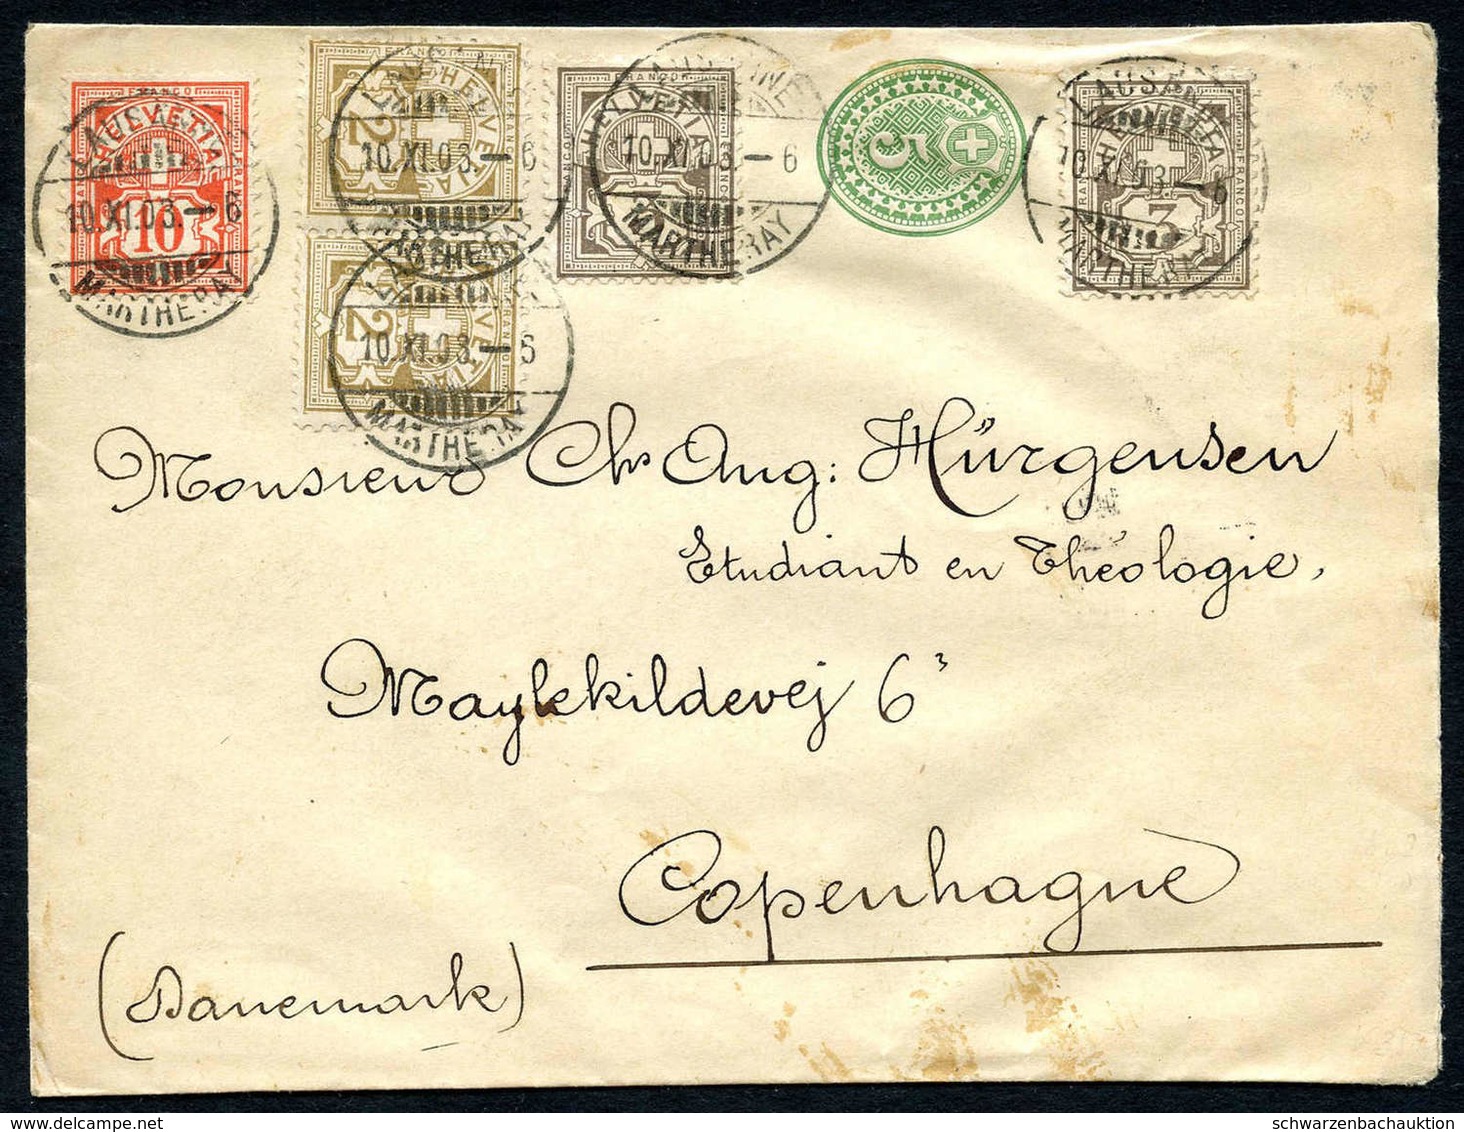 FRANCO
HELVETIA
10
LAUSANNE
10.XI.03.–6
MARTHERAY
FRANCO
HELVETIA
2
LAUSANNE
10.XI.03–6
MARTHERAY
FRANCO
HELVETIA
2
10.XI.03–6
MARTHERAY
FRANCO
HELVETIA
LAUSANNE
10.XI.03–6
MARTHERAY
5
FRANCO
HELVETIA
3
LAUSANNE
10.XI.03–6
MARTHERAY
Monsieur Chs Aug: Hürgensen
Etudiant en Théologie,
Maylekildevej 6³
Copenhague
(Danemark)
schwarzenbachauktion